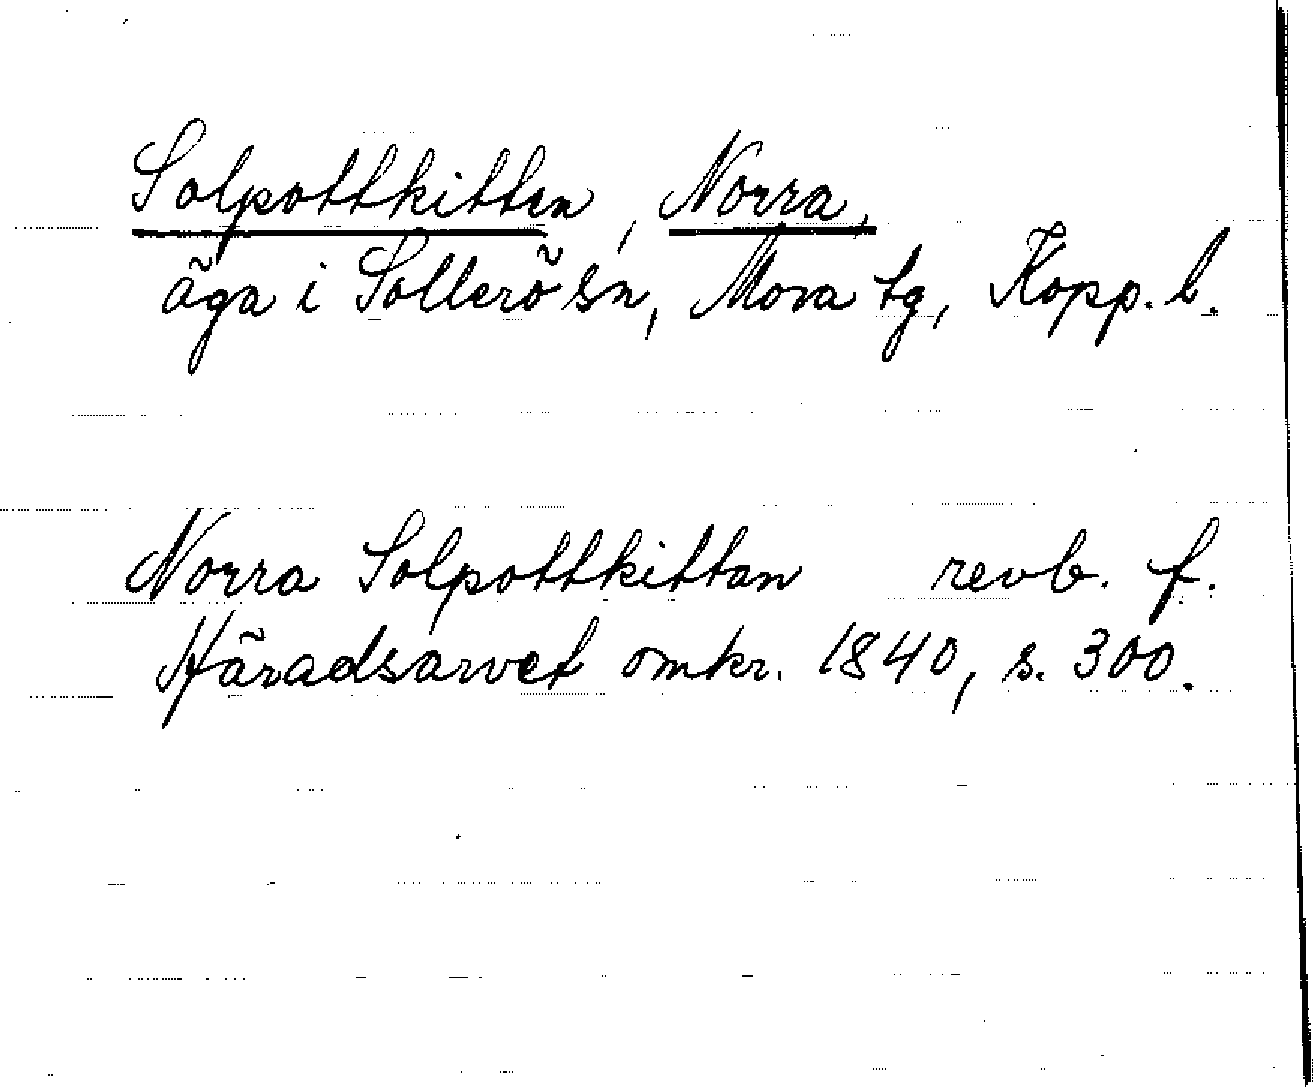 Solpottkittan, Norra,
äga i Sollerö sn, Mora tg, Kopp. l.
Norra Solpottkittan revb. f.
Häradsarvet omkr. 1840, s. 300.